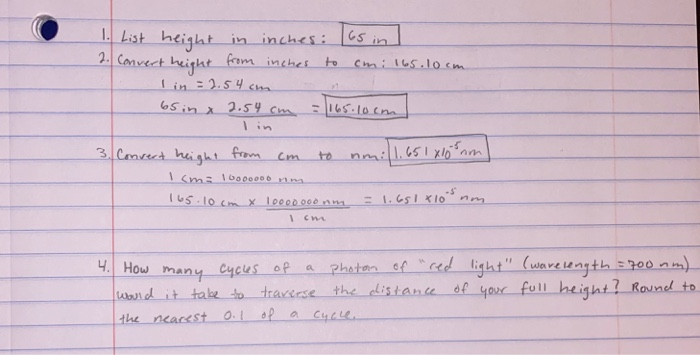 1. List height in inches: 65 in
2. Convert height from inches to cm: 165.10 cm
1 in = 2.54 cm
65 in x 2.54 cm / 1 in = 165.10 cm
3. Convert height from cm to nm: 1.651 x 10^-5 nm
1 cm = 10000000 nm
165.10 cm x 10000000 nm / 1 cm = 1.651 x 10^-5 nm
4. How many cycles of a photon of "red light" (wavelength = 700 nm)
would it take to traverse the distance of your full height? Round to
the nearest 0.1 of a cycle.